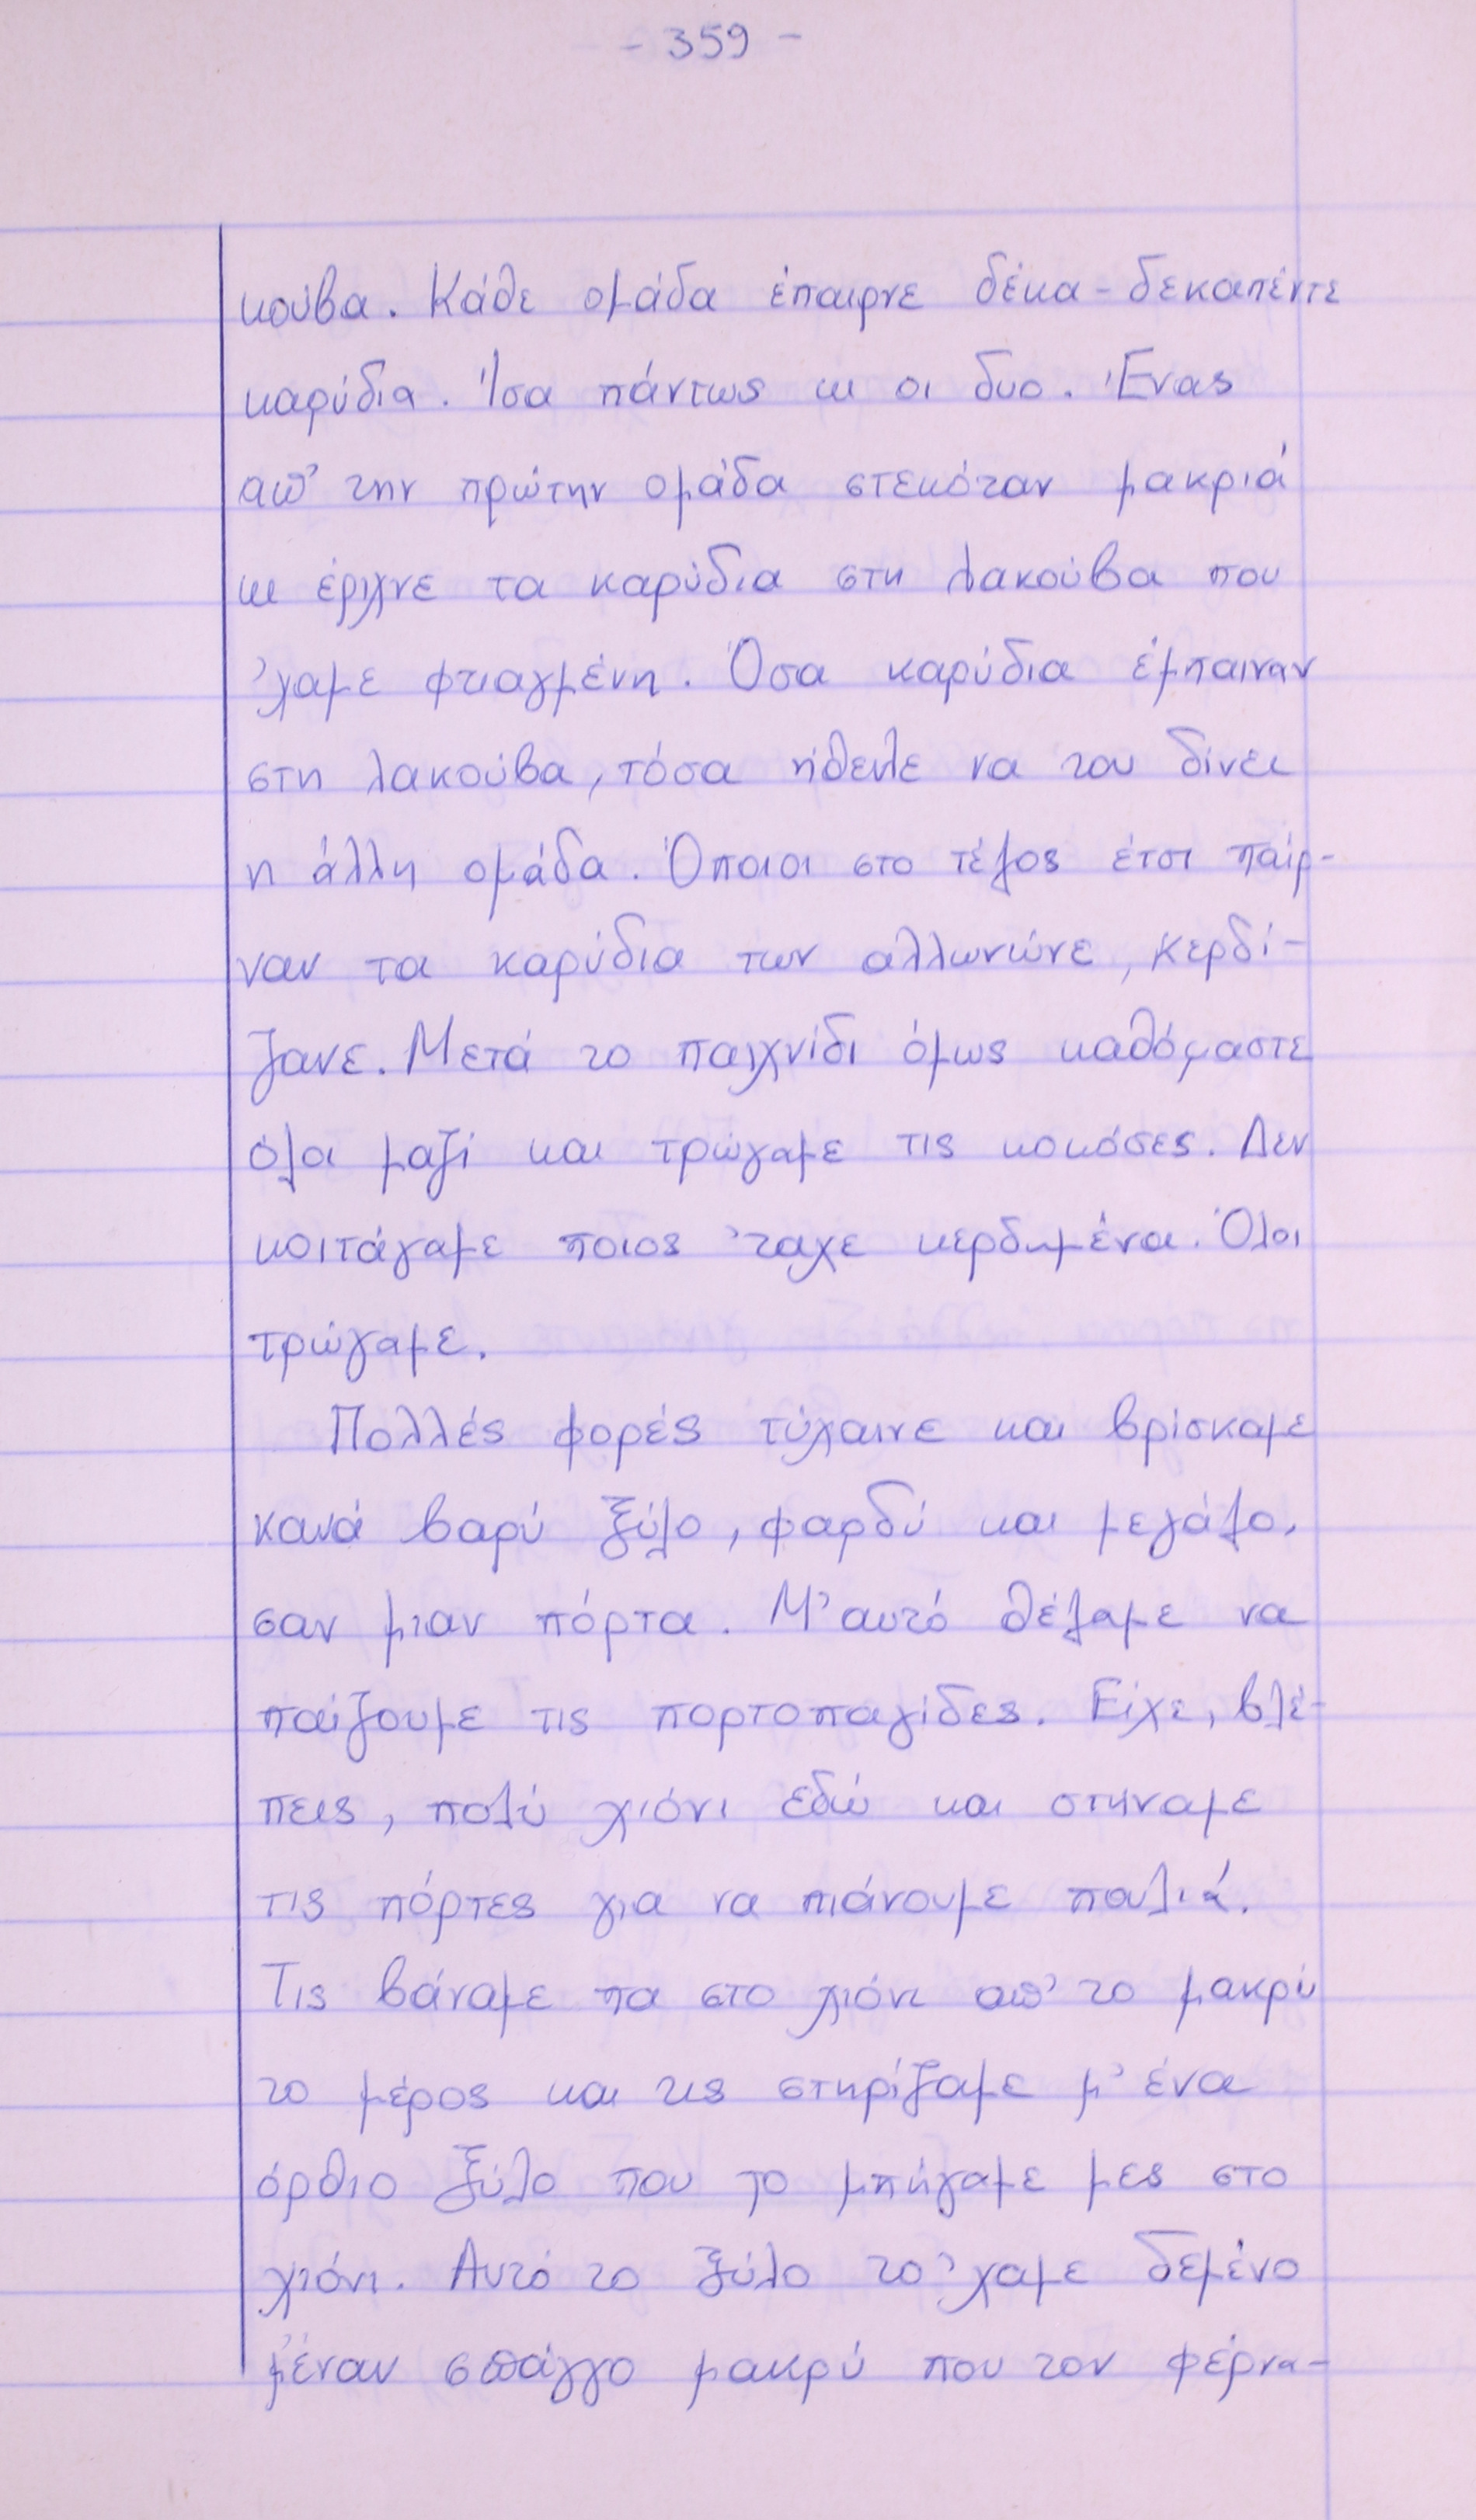 - 359 -
κούβα. Κάθε ομάδα έπαιρνε δέκα - δεκαπέντε
καρύδια. Ίσα πάντως κι οι δυο. Ένας
απ' την πρώτην ομάδα στεκόταν μακριά
κι έριχνε τα καρύδια στη λακούβα που
'χαμε φτιαγμένη. Όσα καρύδια έμπαιναν
στη λακούβα, τόσα ήθενλε να του δίνει
η άλλη ομάδα. Όποιοι στο τέλος έτσι παίρ-
ναν τα καρύδια των αλλωνώνε, κερδί-
ζανε. Μετά το παιχνίδι όμως καθόμαστε
όλοι μαζί και τρώγαμε τις κοκόσες. Δεν
κοιτάγαμε ποιος 'ταχε κερδημένα. Όλοι
τρώγαμε.
Πολλές φορές τύχαινε και βρίσκαμε
κανά βαρύ ξύλο, φαρδύ και μεγάλο,
σαν μιαν πόρτα. Μ' αυτό θέλαμε να
παίζουμε τις πορτοπαγίδες. Είχε, βλέ-
πεις, πολύ χιόνι εδώ και στήναμε
τις πόρτες για να πιάνουμε πουλιά.
Τις βάναμε πα στο χιόνι απ' το μακρύ
το μέρος και τις στηρίζαμε μ' ένα
όρθιο ξύλο που το μπήγαμε μες στο
χιόνι. Αυτό το ξύλο το 'χαμε δεμένο
μ' έναν σπάγγο μακρύ που τον φέρνα-